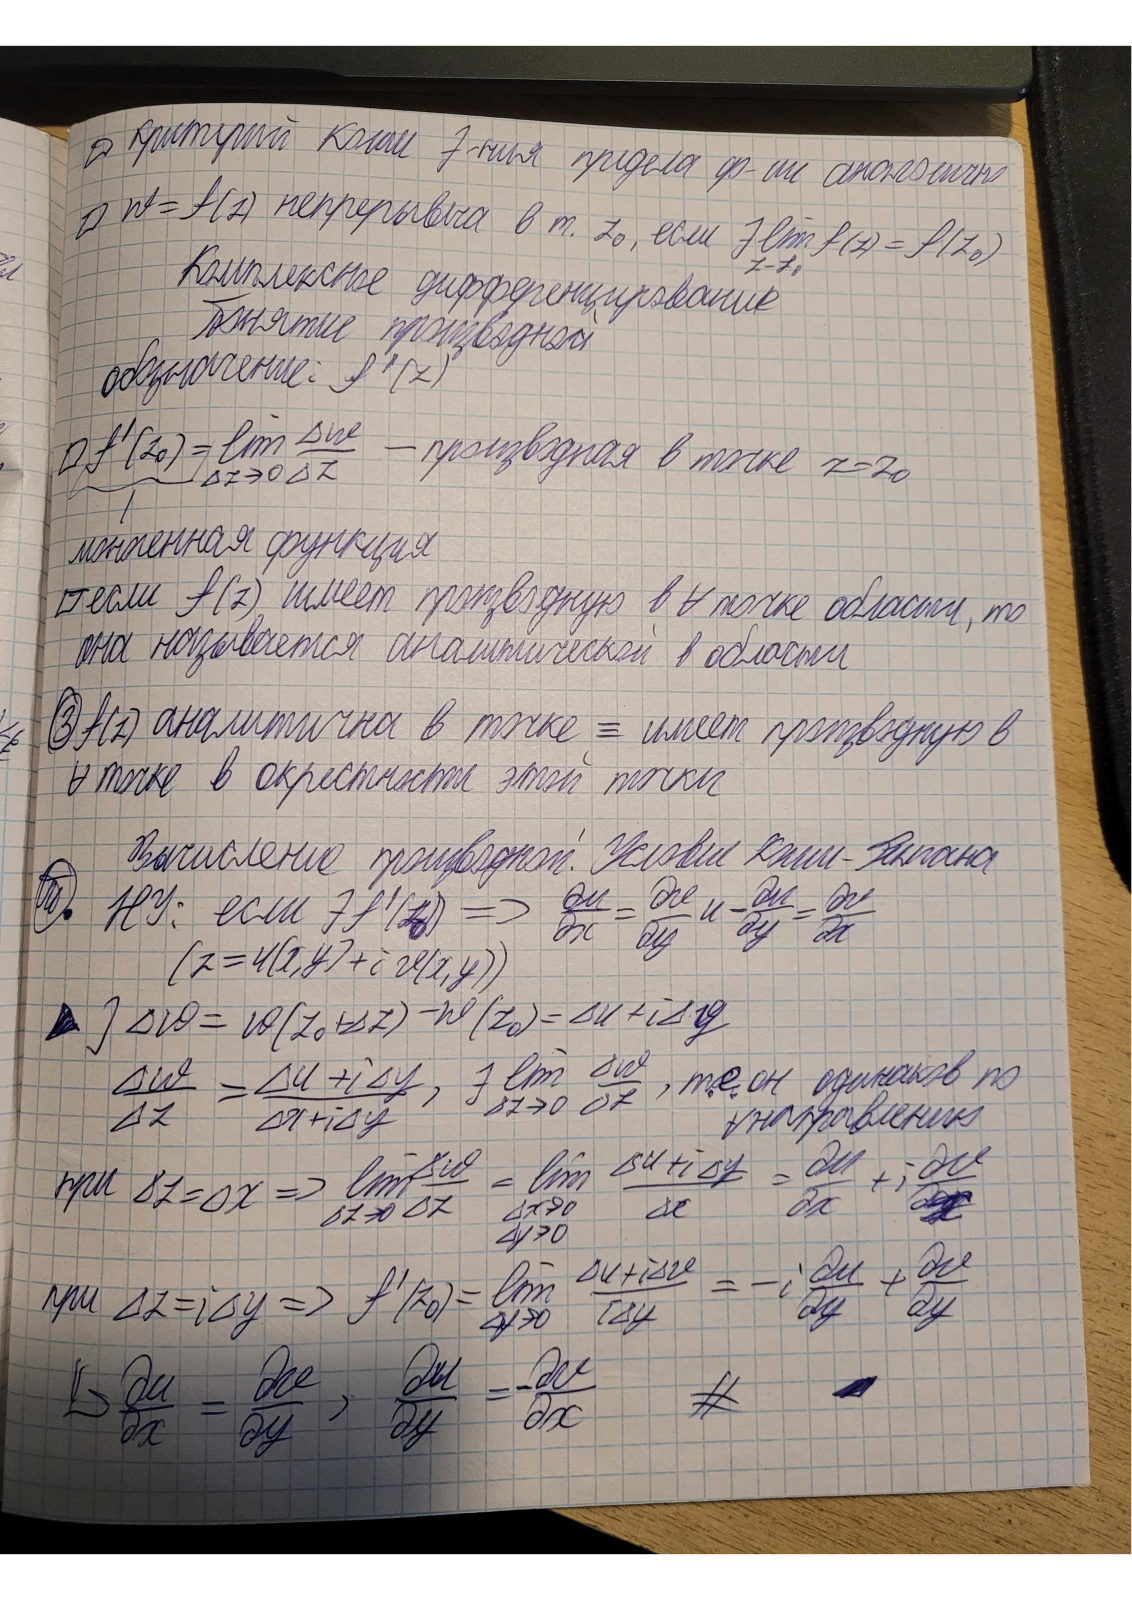 □ Критерий Коши ∃-ния предела ф-ии аналогично
□ w = f(z) непрерывна в т. z₀, если ∃ lim_{z→z₀} f(z) = f(z₀)
Комплексное дифференцирование
Понятие производной
обозначение: f'(z)
□ f'(z₀) = lim_{Δz→0} Δw/Δz — производная в точке z=z₀
функция
□ если f(z) имеет производную в ∀ точке области, то
она называется аналитической в области
③ f(z) аналитична в точке ≡ имеет производную в
∀ точке в окрестности этой точки
Вычисление производной. Условие Коши-Римана
Ⓣ. НУ: если ∃ f'(z₀) => ∂u/∂x = ∂v/∂y и -∂u/∂y = ∂v/∂x
(z = u(x,y) + i v(x,y))
▲ ] Δw = w(z₀+Δz) - w(z₀) = Δu + iΔv
Δw/Δz = (Δu + iΔy)/(Δx + iΔy), ∃ lim_{Δz→0} Δw/Δz, т.е. он одинаков по
∀ направлению
при Δz = Δx => lim_{Δz→0} Δw/Δz = lim_{Δx→0 Δy→0} (Δu + iΔy)/Δx = ∂u/∂x + i ∂v/∂x
при Δz = iΔy => f'(z₀) = lim_{Δy→0} (Δu + iΔv)/(iΔy) = -i ∂u/∂y + ∂v/∂y
↳ ∂u/∂x = ∂v/∂y, ∂u/∂y = -∂v/∂x #